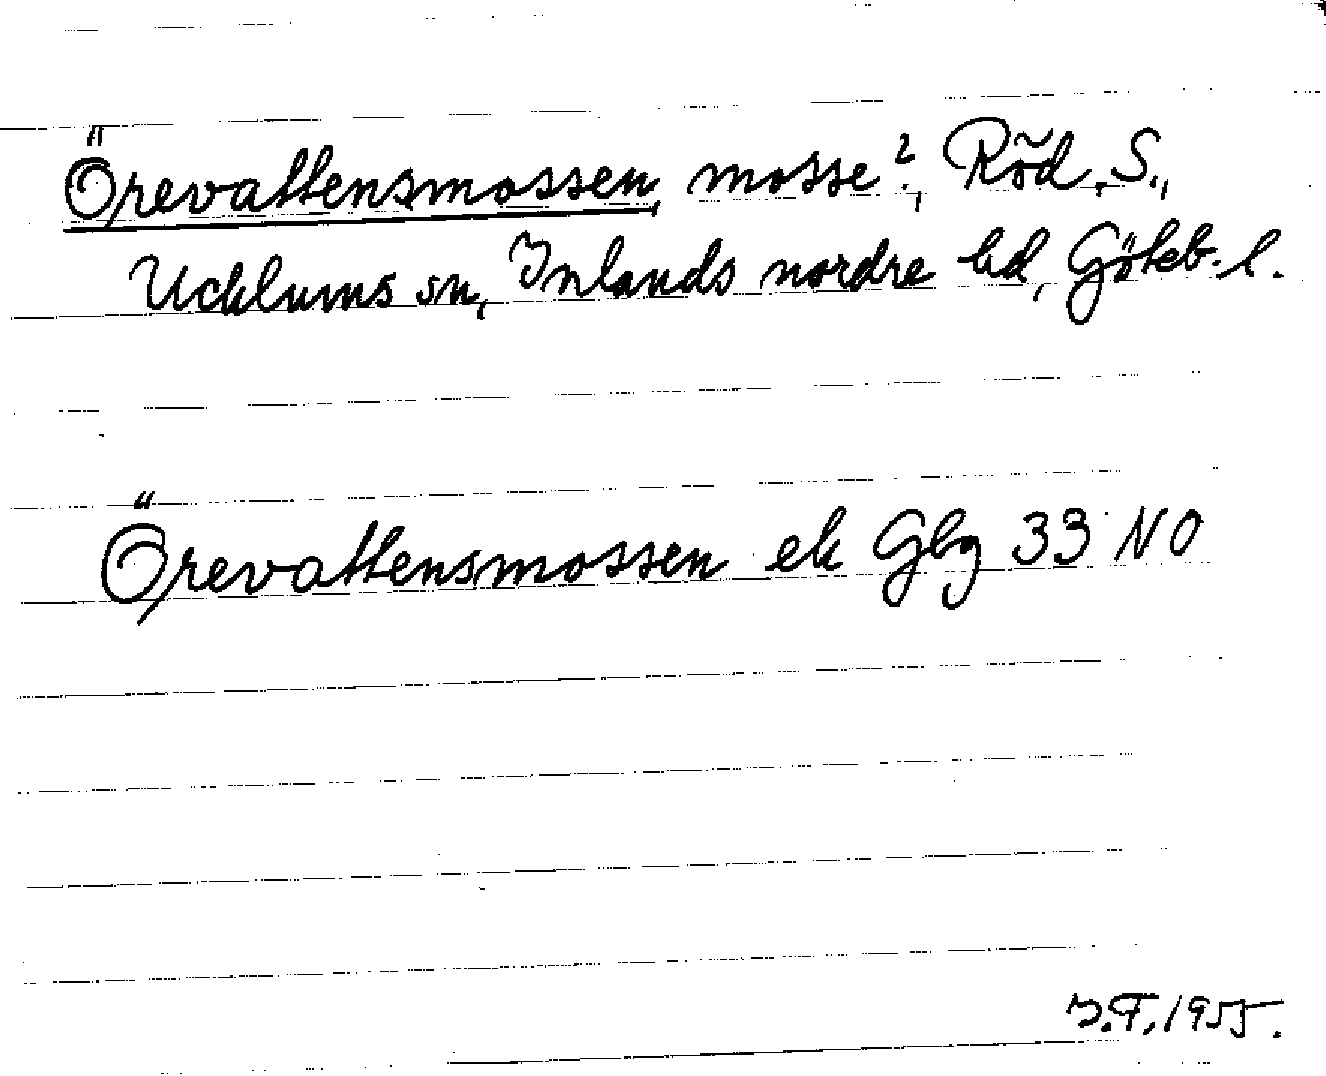 Örevattensmossen, mosse?, Röd, S.,
Ucklums sn, Inlands nordre hd, Göteb. l.
Örevattensmossen ek Gbg 33 NO
I.F. 1955.